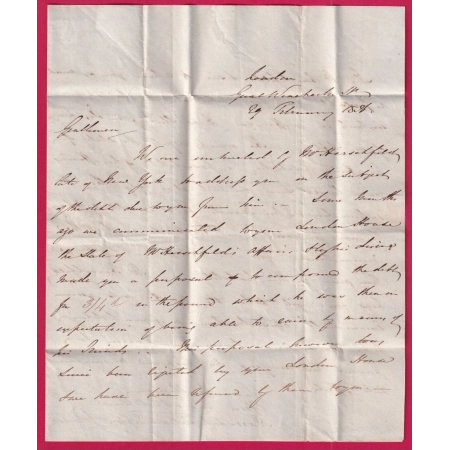 London
Great Winchester St
29 February 18
Gentlemen
We are instructed by Mr Herschfield
late of New York to address you on the Subject
of the debt due to you from him — Some
ago we communicated to your London House
the State of Mr Herschfield's Affairs
made you a proposal to compound the debt
for 3/4 in the pound which he was then in
expectation of being able to raise by means of
his Friends. This proposal however
since been rejected by your London House
have been referred by them to you —